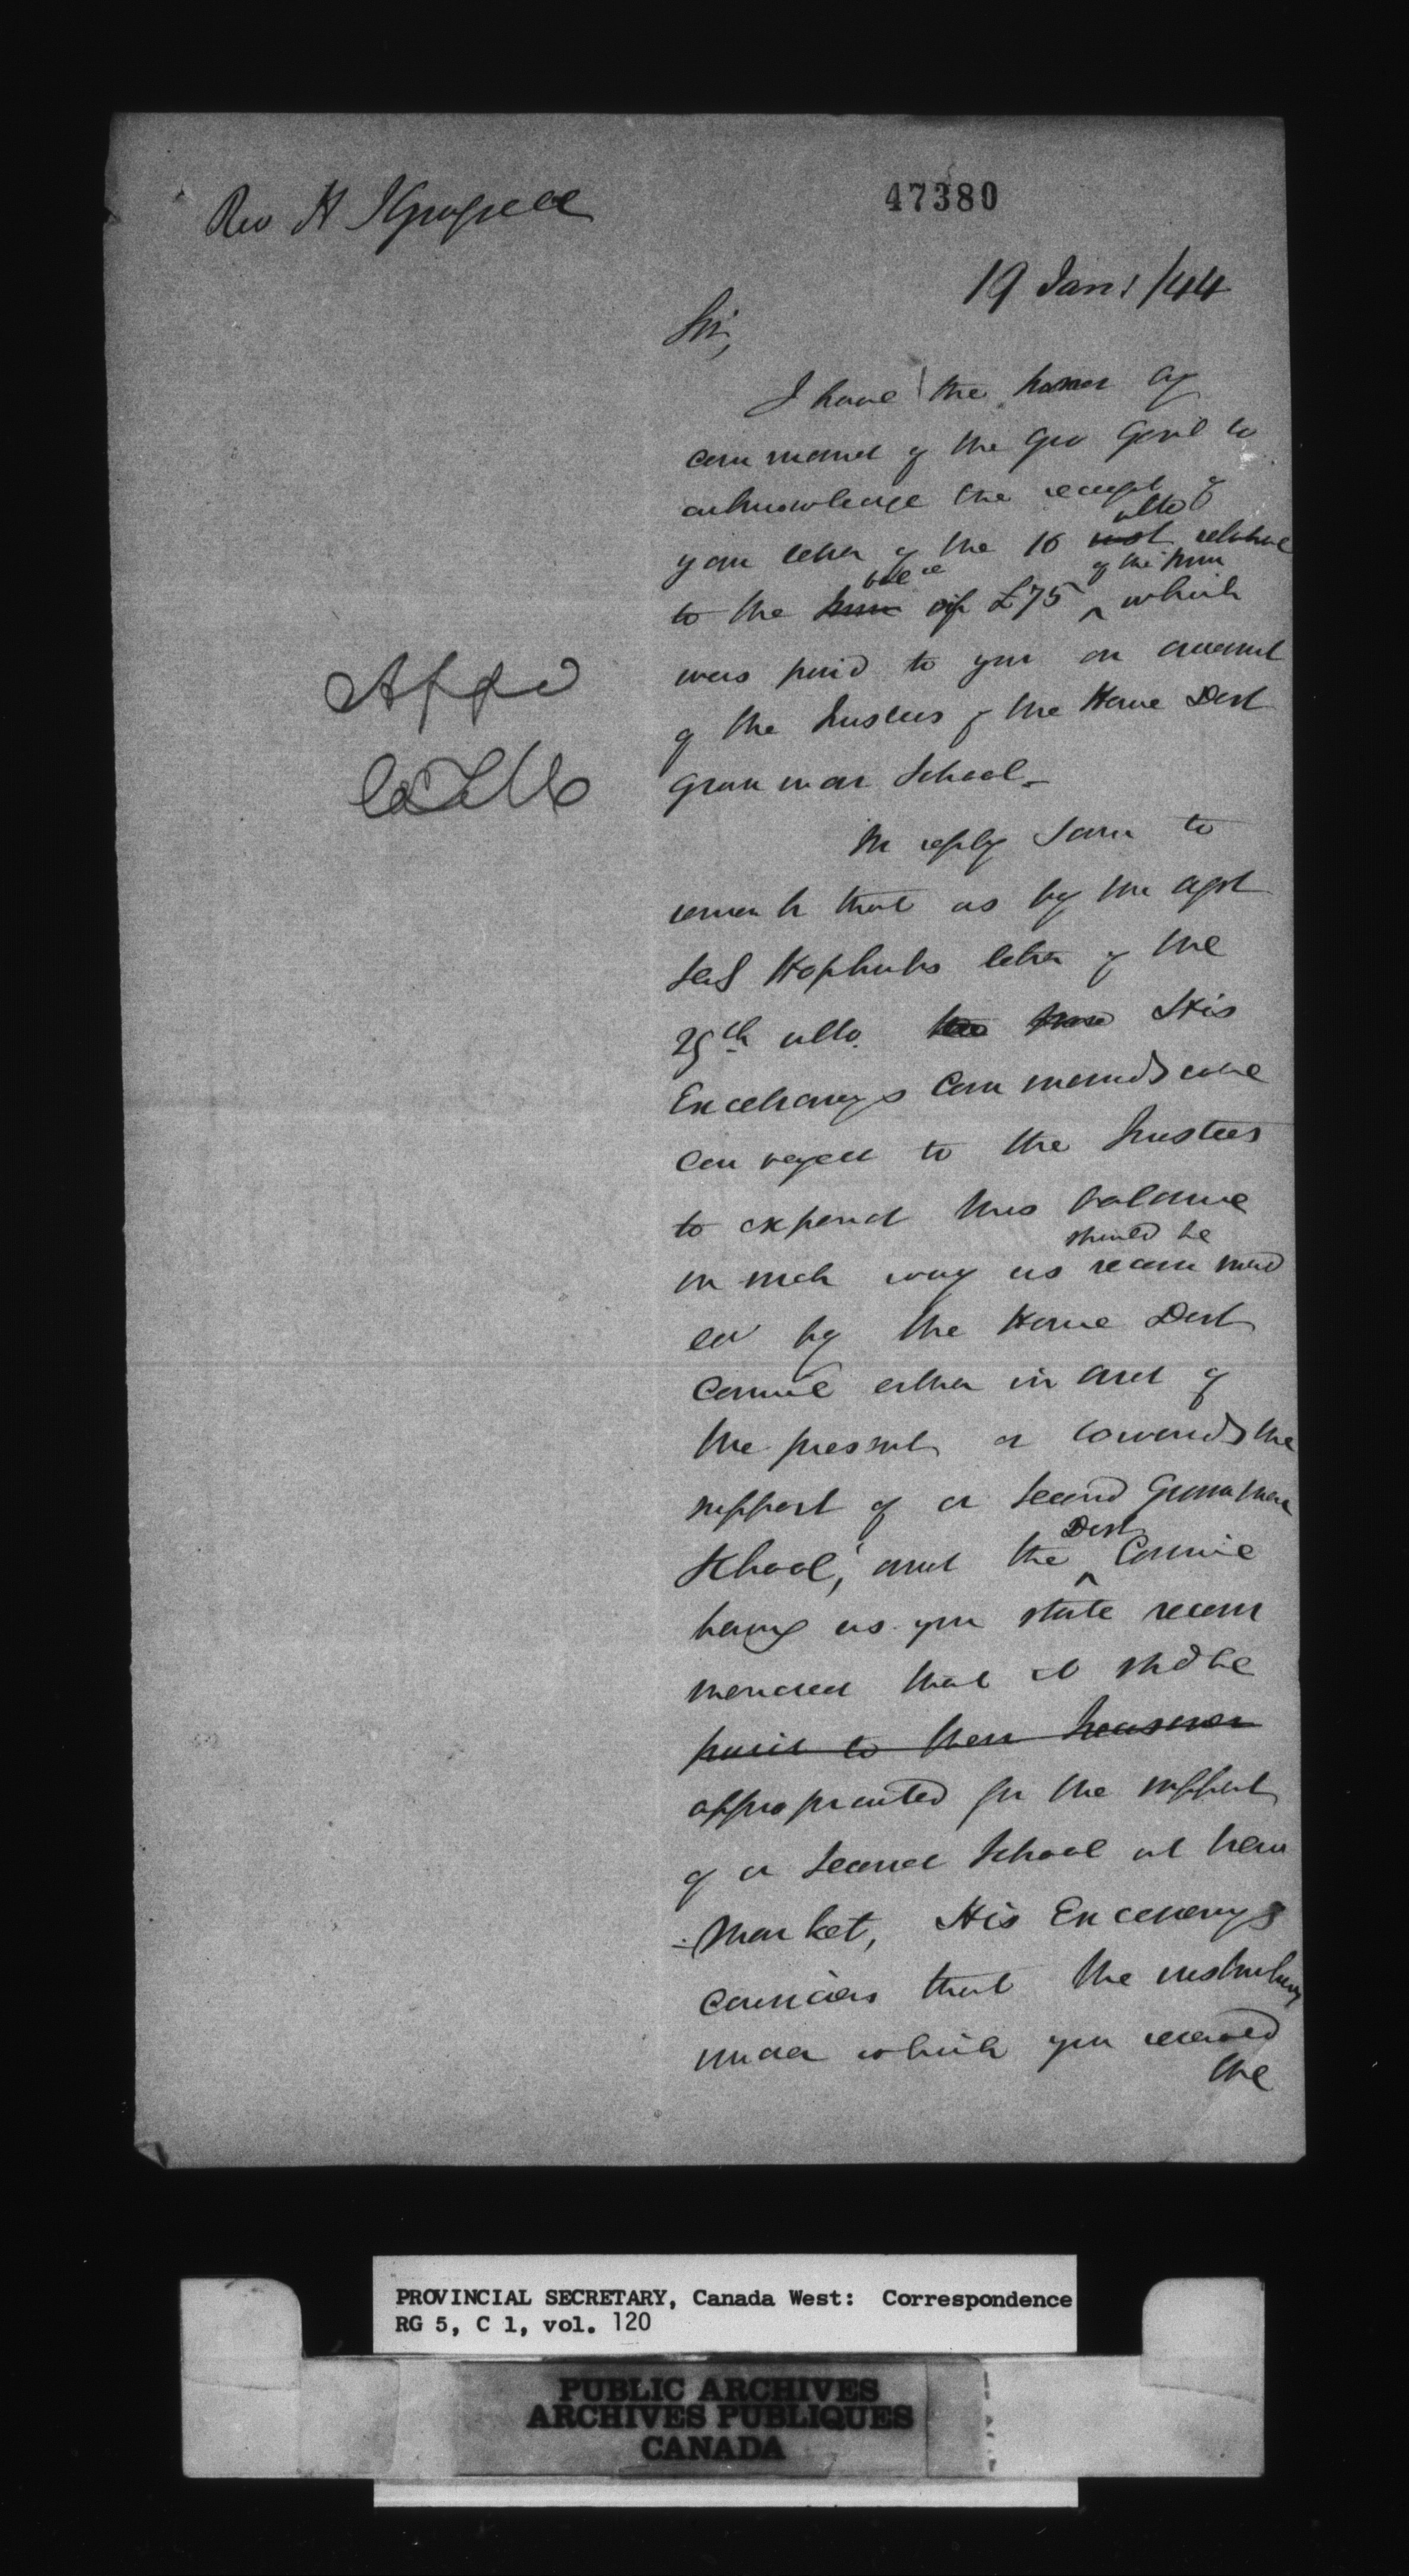 Rev H J Grasett
47380
19 Jan! /44
Sir,
I have the honor by
command of the Gov Genl to
acknowledge the receipt of
your letter of the 16 inst ulto relative
to the sum balce of £75 of the sum which
was paid to you on account
of the Trustees of the Home Dist
Grammar School_
In reply I am to
remark that as by the
letter of the
25th ulto. His
Excellencys Commands were
conveyed to the Trustees
to expend this balance
in such way as should be recommend
ed by the Home Dist
Council either in aid of
the present or towards the
support of a second Grammar
School, and the Dist Council
having as you state recom
mended that it shd be
paid to their Treasurer
appropriated for the support
of a second School at New
-market, His Excellency
considers that the
under which you received
the
Appd
PROVINCIAL SECRETARY, Canada West: Correspondence
RG 5, C 1, vol. 120
PUBLIC ARCHIVES
ARCHIVES PUBLIQUES
CANADA